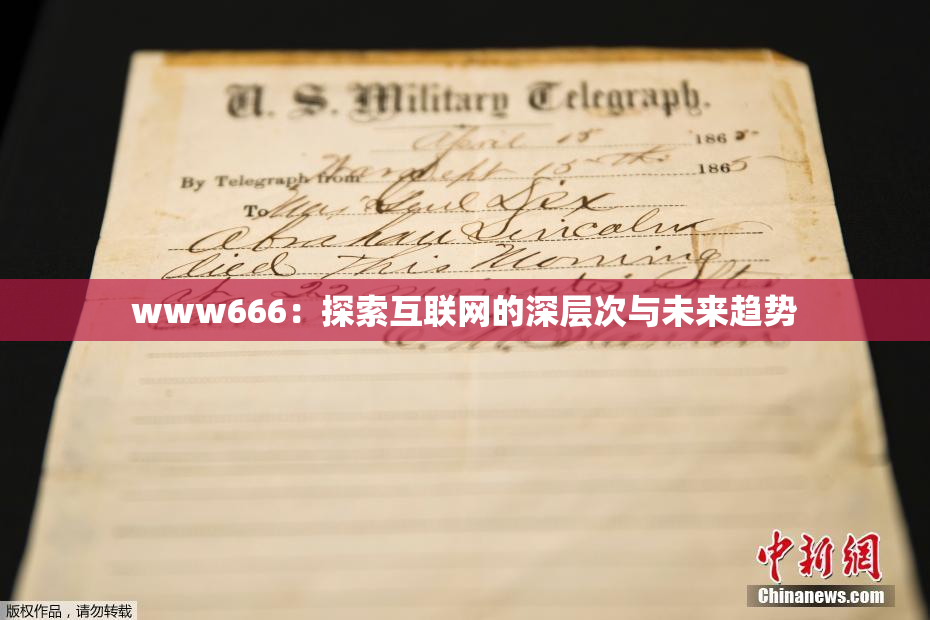 U. S. Military Telegraph.
April 15 1865
By Telegraph from War Dept 15th 1865
To Maj Genl Dix
Abraham Lincoln
died This Morning
at 22 minutes after
www666：探索互联网的深层次与未来趋势
中新网
Chinanews.com
版权作品，请勿转载